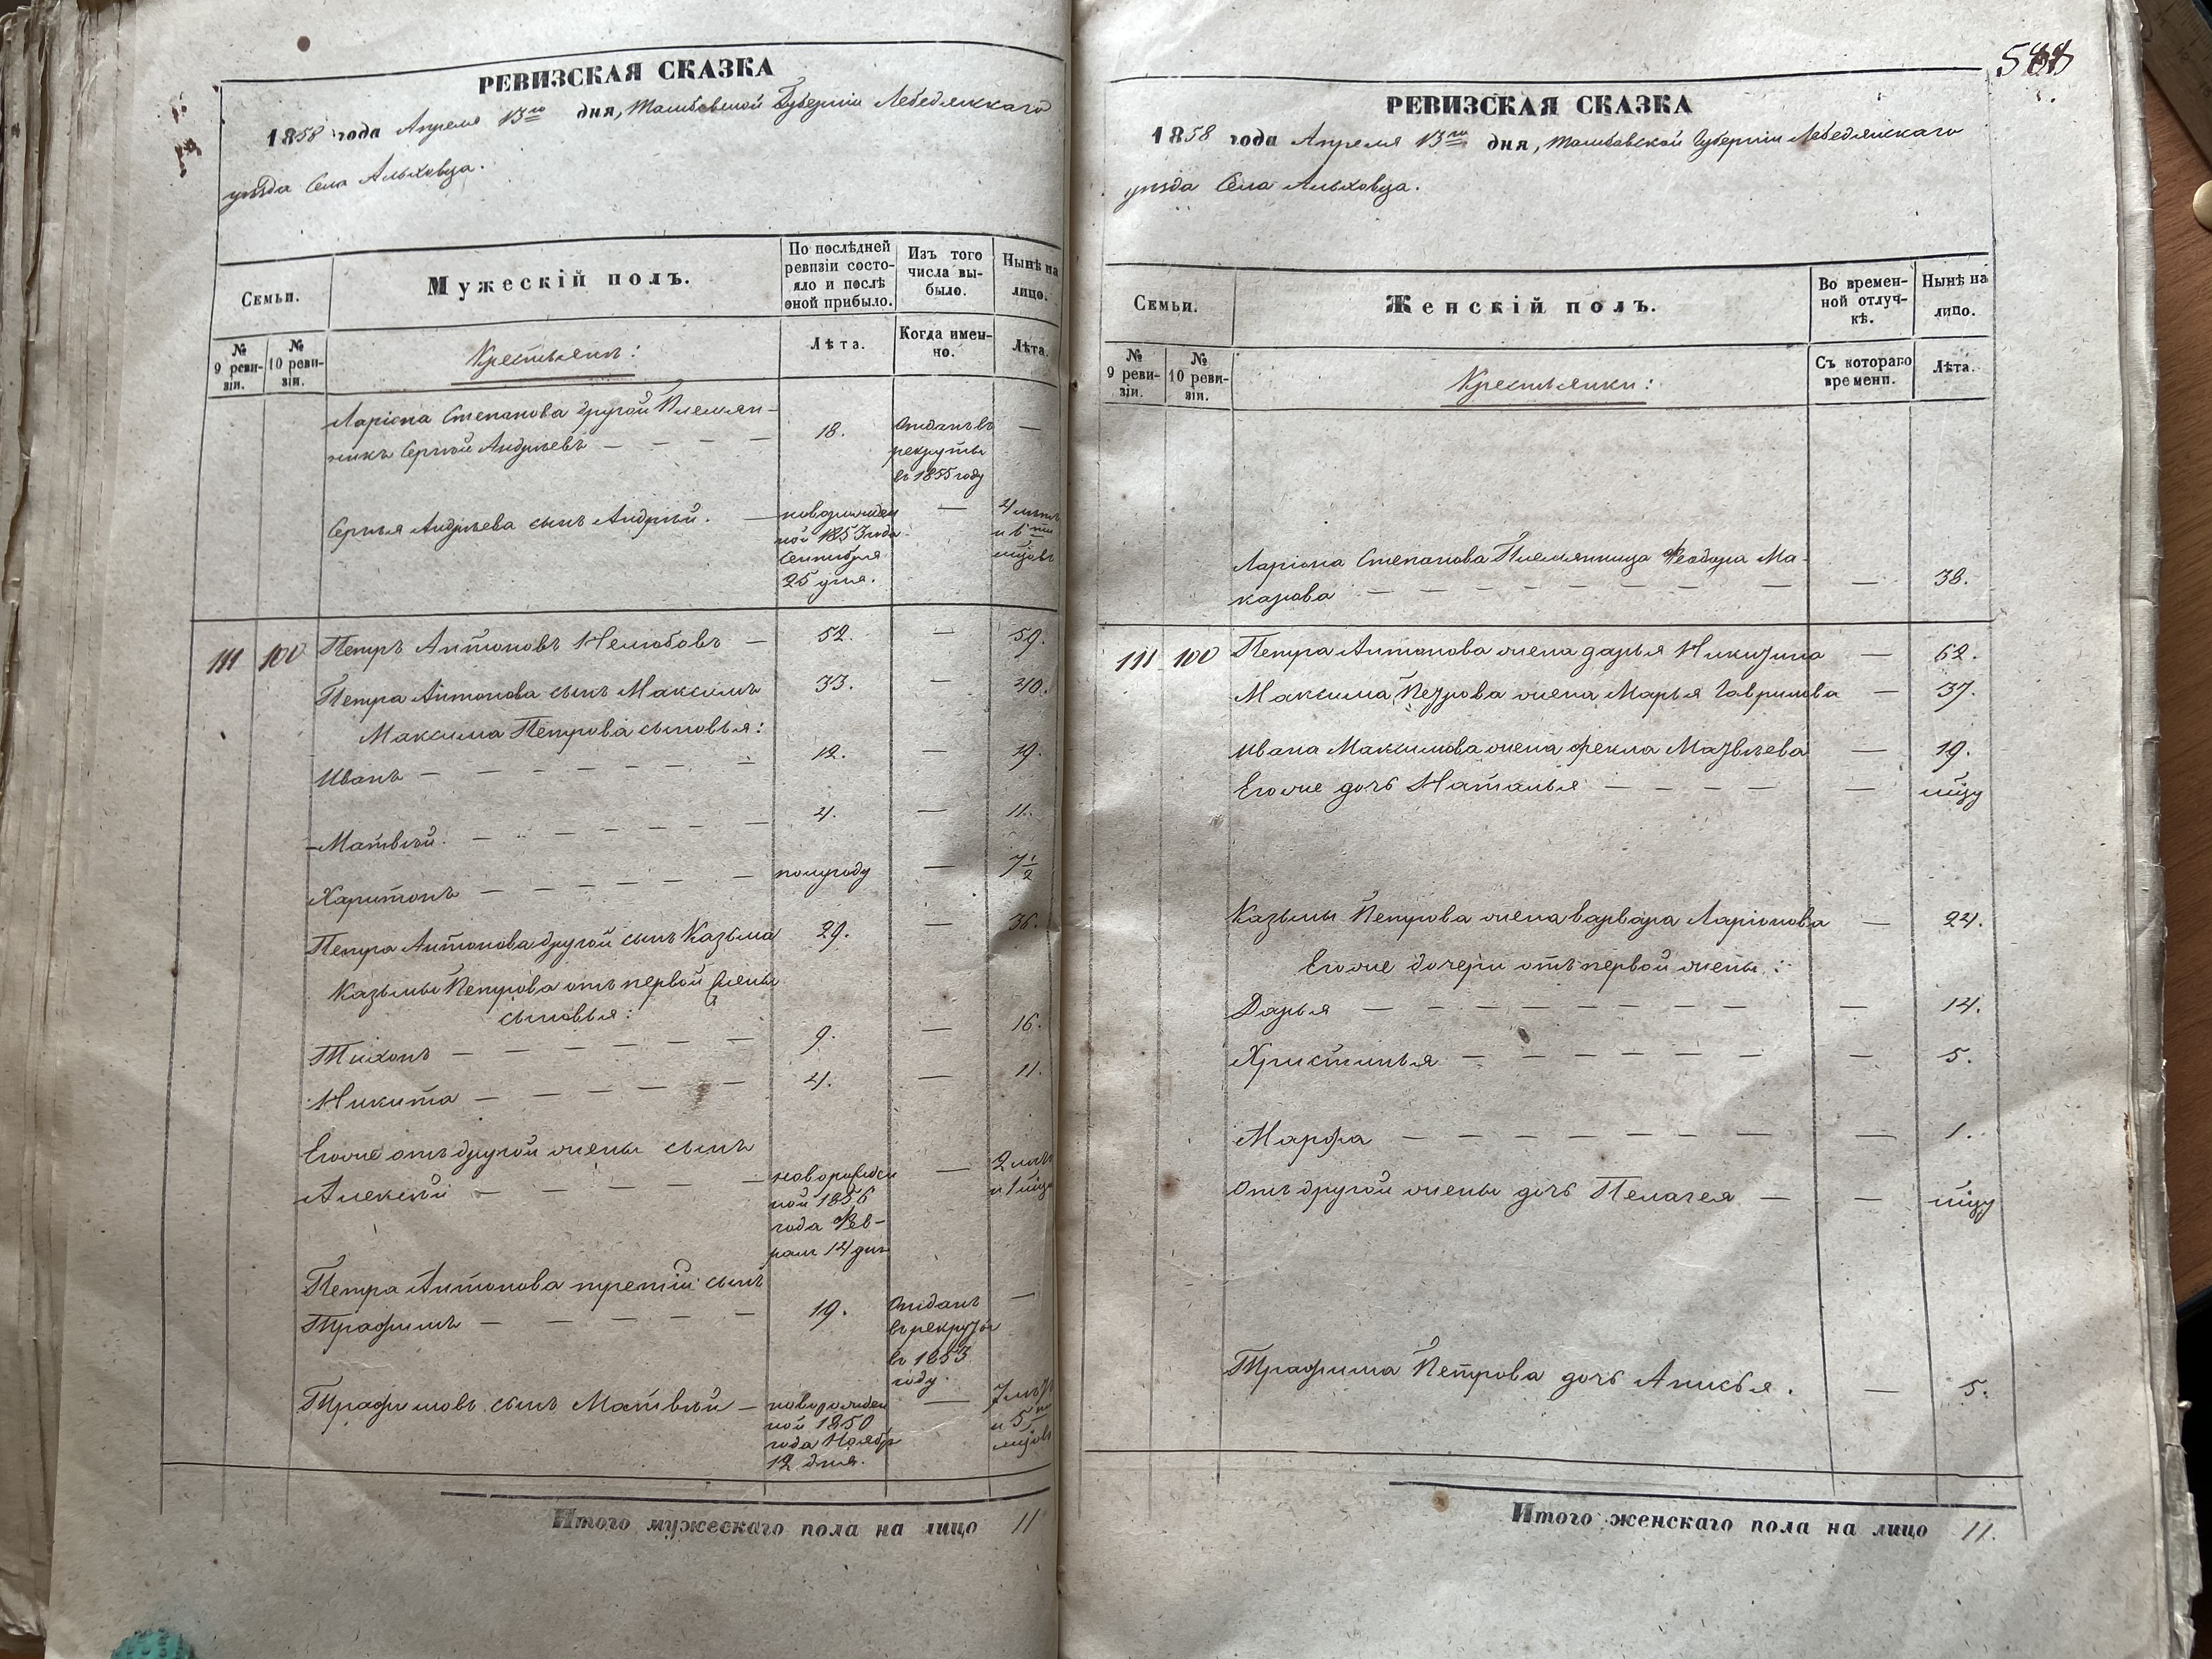 РЕВИЗСКАЯ СКАЗКА
1858 года Апреля 13го дня, Тамбовской Губерніи Лебедянскаго
уѣзда Села Альховца.
Семьи.
Мужескій полъ.
По послѣдней ревизіи состояло и послѣ оной прибыло.
Изъ того числа выбыло.
Нынѣ на лицо.
№ 9 ревизіи.
№ 10 ревизіи.
Крестьянъ:
Лѣта.
Когда именно.
Лѣта.
Ларіона Степанова другой Племян-
никъ Сергѣй Андрѣевъ — — — — 18. Отданъ въ рекруты въ 1855 году —
Сергѣя Андрѣева сынъ Андрѣй. — новорожден
ной 1853 года
Сентября
25 дня. — 4 лѣтъ и 6ть мцовъ
111 100 Петръ Антоновъ Нелюбовъ — 52. — 59.
Петра Антонова сынъ Максимъ 33. — 40.
Максима Петрова сыновья:
Иванъ — — — — — — — 12. — 19.
Матвѣй. — — — — — — 4. — 11.
Харитонъ — — — — — — полугоду — 7 1/2
Петра Антонова другой сынъ Казьма 29. — 36.
Казьмы Петрова отъ первой жены
сыновья:
Тихонъ — — — — — — 9. — 16.
Никита — — — — — — 4. — 11.
Егоже отъ другой жены сынъ
Алексѣй — — — — — новорожден
ной 1856
года Фев-
раля 14 дня — 2 лѣтъ и 1 мцъ
Петра Антонова третій сынъ
Трафимъ — — — — — 19. Отданъ
въ рекруты
въ 1853
году. —
Трафимовъ сынъ Матвѣй — новорожден
ной 1850
года Ноябр
12 дня. — 7 лѣтъ и 5ть мцовъ
Итого мужескаго пола на лицо 11
РЕВИЗСКАЯ СКАЗКА
1858 года Апреля 13го дня, Тамбовской Губерніи Лебедянскаго
уѣзда Села Альховца.
Семьи.
Женскій полъ.
Во временной отлучкѣ.
Нынѣ на лицо.
№ 9 ревизіи.
№ 10 ревизіи.
Крестьянки:
Съ котораго времени.
Лѣта.
Ларіона Степанова Племянница Феодора Ма-
карова — — — — — — — — 38.
111 100 Петра Антонова жена дарья Никитина — 62.
Максима Петрова жена Марья Гаврилова — 37.
Ивана Максимова жена фекла Матвѣева — 19.
Егоже дочь Наталья — — — — — мцу
Казьмы Петрова жена варвара Ларіонова — 24.
Егоже дочери отъ первой жены:
Дарья — — — — — — — — — 14.
Христинья — — — — — — — — 5.
Марфа — — — — — — — — 1.
Отъ другой жены дочь Пелагея — — мцу
Трафима Петрова дочь Анисья. — 5.
Итого женскаго пола на лицо 11.